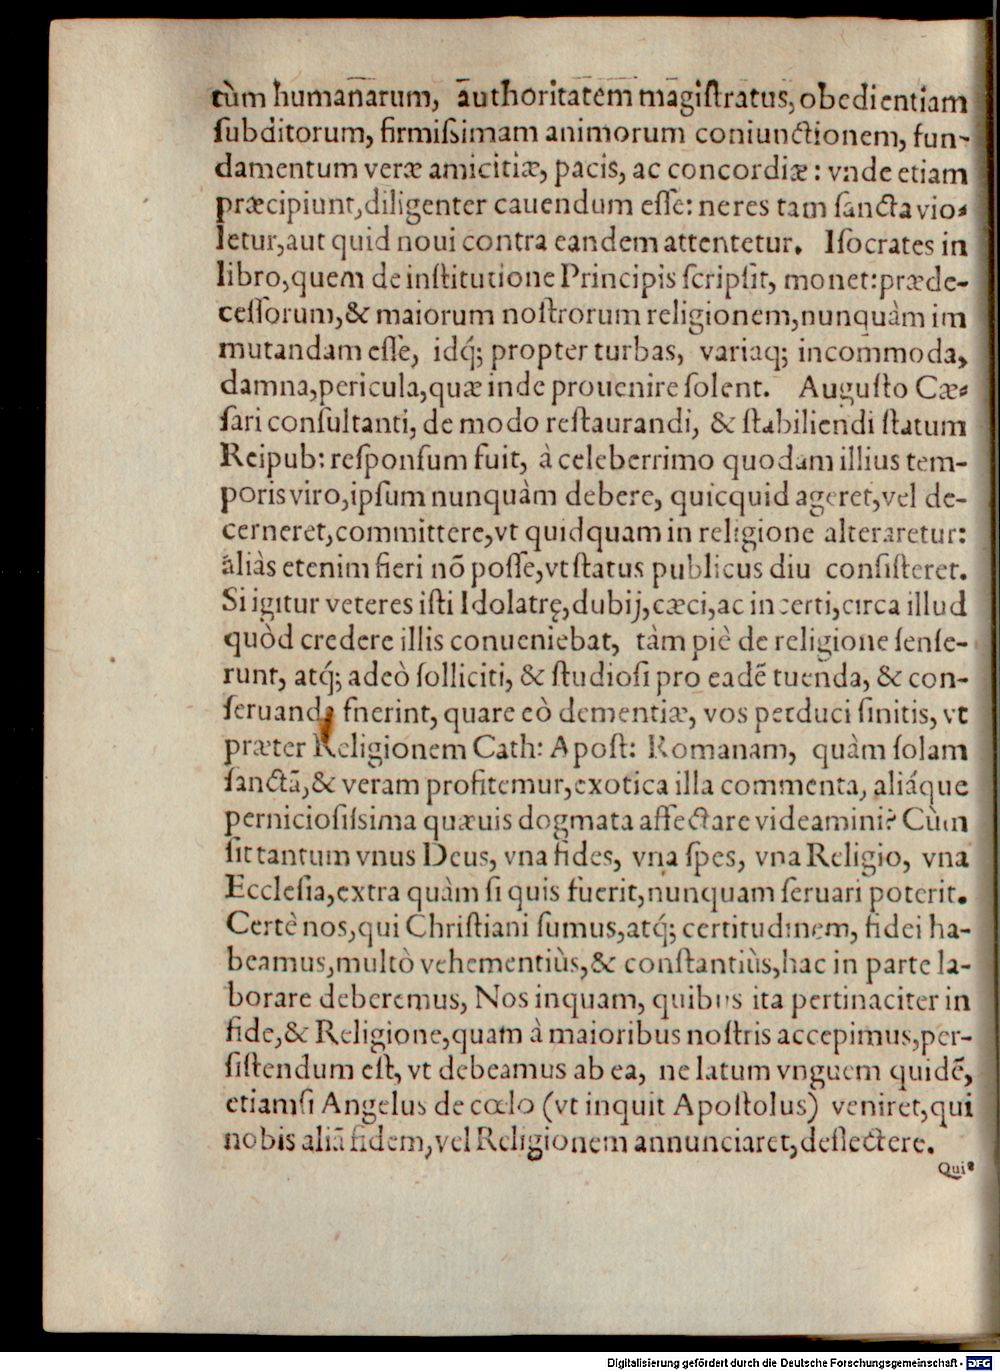 tùm humanarum, authoritatem magiſtratus, obedientiam
ſubditorum, firmiſsimam animorum coniunctionem, fun-
damentum veræ amicitiæ, pacis, ac concordiæ: vnde etiam
præcipiunt, diligenter cauendum eſſe: ne res tam ſancta vio-
letur, aut quid noui contra eandem attentetur. Iſocrates in
libro, quem de inſtitutione Principis ſcripſit, monet: præde-
ceſſorum, & maiorum noſtrorum religionem, nunquàm im
mutandam eſſe, idq́; propter turbas, variaq; incommoda,
damna, pericula, quæ inde prouenire ſolent. Auguſto Cæ-
ſari conſultanti, de modo reſtaurandi, & ſtabiliendi ſtatum
Reipub: reſponſum fuit, à celeberrimo quodam illius tem-
poris viro, ipſum nunquàm debere, quicquid ageret, vel de-
cerneret, committere, vt quidquam in religione alteraretur:
aliàs etenim fieri nõ poſſe, vt ſtatus publicus diu conſiſteret.
Si igitur veteres iſti Idolatrę, dubij, cæci, ac incerti, circa illud
quòd credere illis conueniebat, tàm piè de religione ſenſe-
runt, atq́; adeò ſolliciti, & ſtudioſi pro eadẽ tuenda, & con-
ſeruanda fnerint, quare eò dementiæ, vos perduci ſinitis, vt
præter Religionem Cath: Apoſt: Romanam, quàm ſolam
ſanctã, & veram profitemur, exotica illa commenta, aliáque
pernicioſiſsima quæuis dogmata affectare videamini? Cùm
ſit tantum vnus Deus, vna fides, vna ſpes, vna Religio, vna
Eccleſia, extra quàm ſi quis fuerit, nunquam ſeruari poterit.
Certè nos, qui Chriſtiani ſumus, atq́; certitudinem, fidei ha-
beamus, multò vehementiùs, & conſtantiùs, hac in parte la-
borare deberemus, Nos inquam, quibus ita pertinaciter in
fide, & Religione, quam à maioribus noſtris accepimus, per-
ſiſtendum eſt, vt debeamus ab ea, ne latum vnguem quidẽ,
etiamſi Angelus de cœlo (vt inquit Apoſtolus) veniret, qui
nobis aliã fidem, vel Religionem annunciaret, deflectere.
Qui-
Digitalisierung gefördert durch die Deutsche Forschungsgemeinschaft - DFG